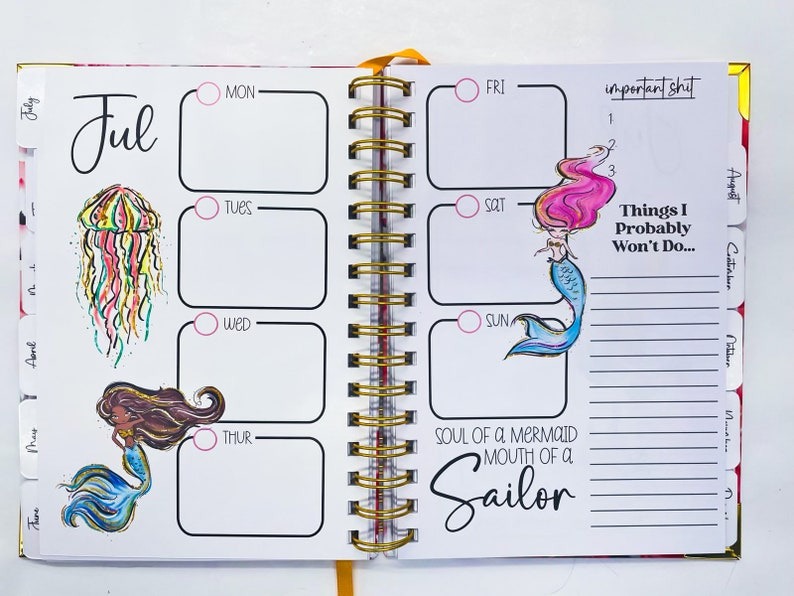 July
Jul
MON
TUES
WED
THUR
April
May
June
FRI
SAT
SUN
important shit
1.
2.
3.
Things I
Probably
Won't Do...
SOUL OF A MERMAID
MOUTH OF A
Sailor
August
September
October
November